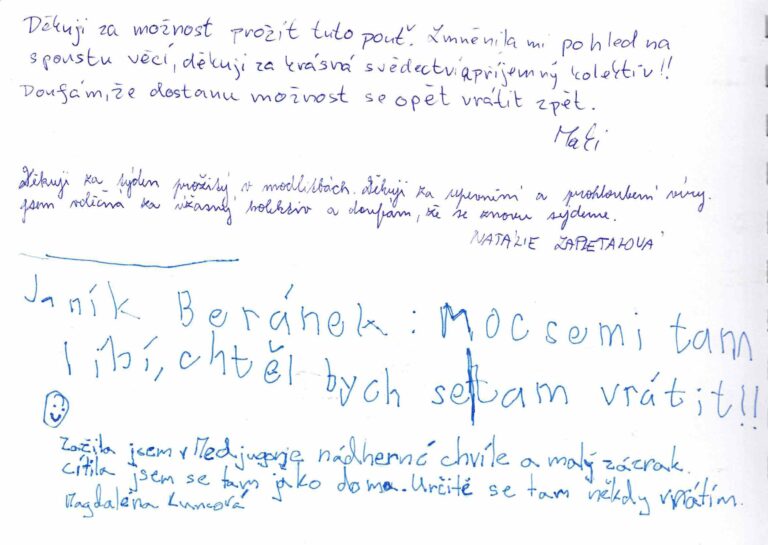 Děkuji za možnost prožít tuto pouť. Změnila mi pohled na
spoustu věcí, děkuji za krásná svědectví a příjemný kolektiv!!
Doufám, že dostanu možnost se opět vrátit zpět.
Děkuji za týden prožitý v modlitbách. Děkuji za upevnění a prohloubení víry.
Jsem vděčná za úžasný kolektiv a doufám, že se znovu sejdeme.
NATÁLIE ZAPLETALOVÁ
Janík Beránek: Moc semi tam
líbí, chtěl bych se tam vrátit!!
Zažila jsem v Medjugorje nádherné chvíle a malý zázrak.
Cítila jsem se tam jako doma. Určitě se tam někdy vrátím.
Magdaléna